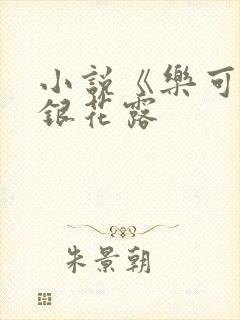 小説《樂可
銀花露
朱景朝